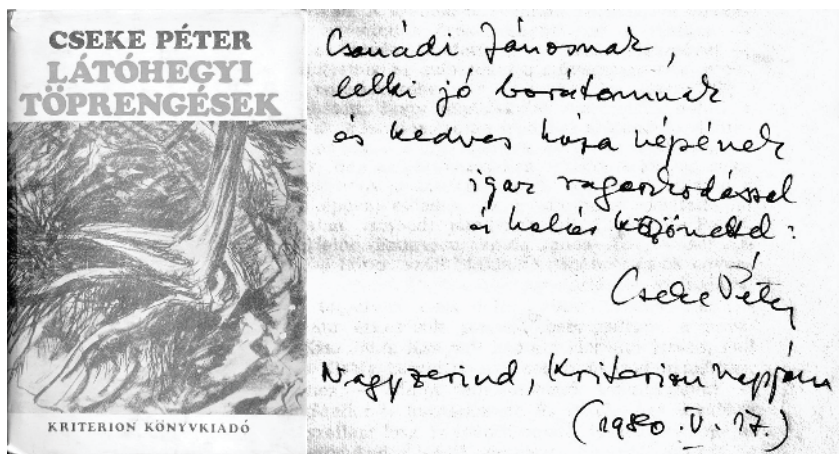 CSEKE PÉTER
LÁTÓHEGYI
TÖPRENGÉSEK
KRITERION KÖNYVKIADÓ
Csanádi Jánosnak,
lelki jó barátomnak
és kedves háza népének
igaz ragaszkodással
és hálás köszönettel:
Cseke Péter
Nagyzerind, Kriterion napján
(1980. V. 17.)